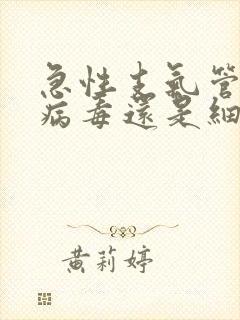 急性支氣管
病毒還是細
黃莉婷